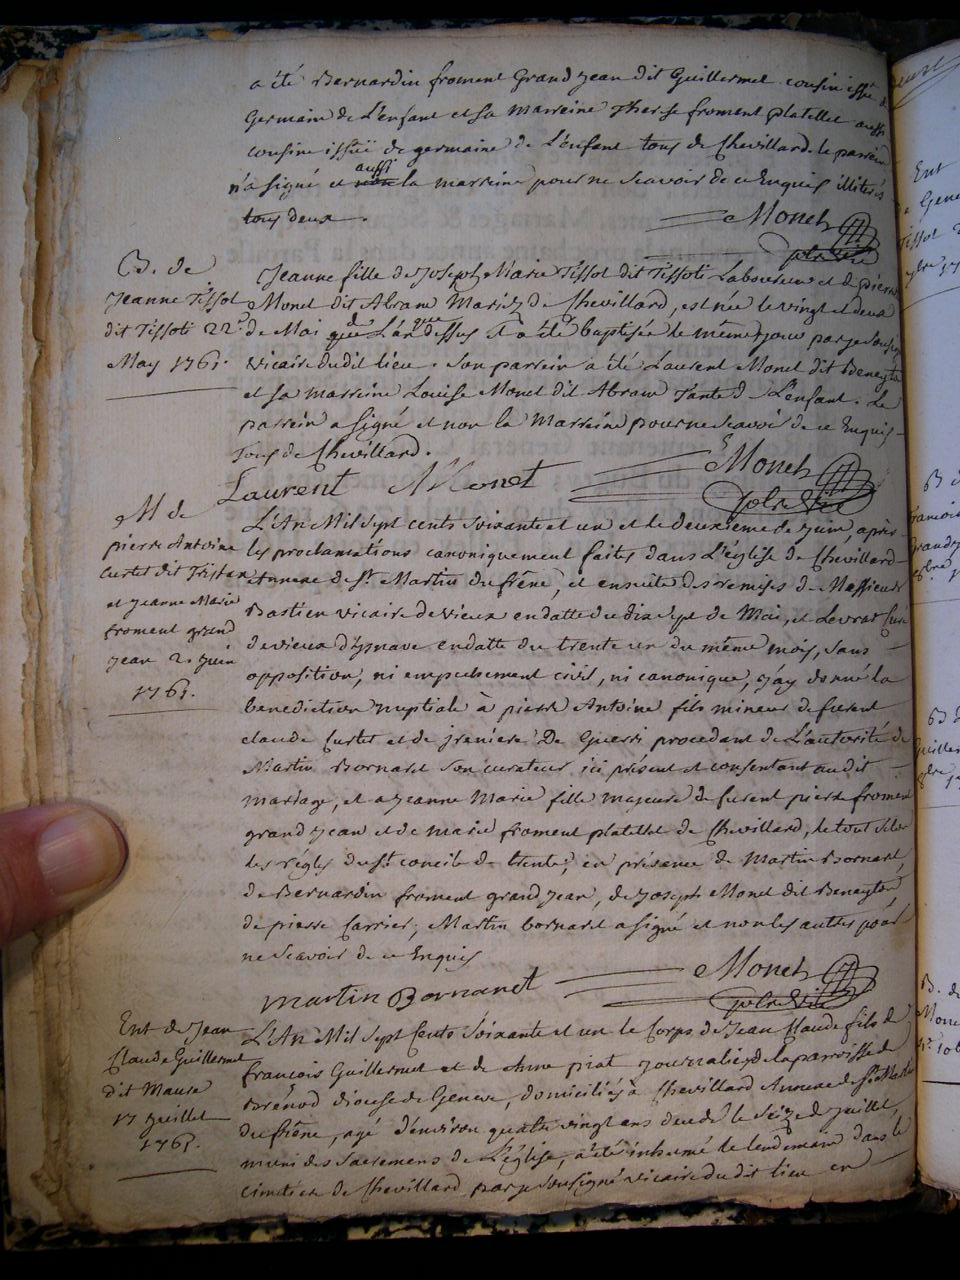 a été Bernardin froment Grand Jean dit Guillermet cousin issu de
Germain de L'enfant et sa Marreine Therese froment platellet aussi
cousine issüe de germaine de L'enfant tous de Chevillard. le parrein
n'a signé et non aussi la marreine pour ne Scavoir de ce Enquis illiterés
tous deux.
Monet
B. de
Jeanne Tissot
dit Tissoti 22e
May 1761.
Jeanne fille de Joseph Marie Tissot dit Tissoti Laboureur et de pierre
Monet dit Abram Mariez de Chevillard, est née le vingt et deux
de Mai que L'an que dessus et a été baptisée le même jour par je soussigné
vicaire du dit lieu. Son parrein a été Laurent Monet dit Beneyton
et sa marreine Louise Monet dit Abram Tante de L'enfant. Le
parrein a signé et non la Marreine pour ne Scavoir de ce Enquis
Tous de Chevillard.
Laurent Monet Monet
M de
pierre Antoine
Curtet dit Tristan
et Jeanne Marie
froment grand
Jean 2. Juin
1761.
L'An Mil Sept cents Soixante et un et le deuxieme de Juin, après
les proclamations canoniquement faites dans L'église de Chevillard
Annexe de St. Martin du frêne, et ensuite des remises de Messieurs
Bastien vicaire de vieux en datte du dix Sept de Mai, et Levrat Curé
de vieux d'Izenave en datte du trente un du même mois, sans
opposition, ni empechement civil, ni canonique, J'ay donné la
benediction nuptiale à pierre Antoine fils mineur de furent
claude Curtet et de Jeaniere De Guerri procedant de L'autorité de
Martin Bornaret Son curateur ici présent et consentant au dit
mariage, et a Jeanne Marie fille majeure de furent pierre froment
grand Jean et de Marie froment platellet de Chevillard, le tout selon
les régles du St concile de trente, en présence de Martin Bornaret,
de Bernardin froment grand Jean, de Joseph Monet dit Beneyton
de pierre Carrier, Martin bornaret a signé et non les autres pour
ne Scavoir de ce Enquis
martin Bornaret Monet
Ent de Jean
Claude Guillermet
dit Maure
17 Juillet
1761.
L'An Mil Sept Cents Soixante et un le Corps de Jean Claude fils de
francois Guillermet et de Anne piat Journaliez de la parroisse de
Brénod diocese de Geneve, domiciliés à Chevillard Annexe de St Martin
du frêne, agé d'environ quatre vingt ans decedé le Seize de Juillet,
muni des Sacremens de L'église, a été inhumé le lendemain dans le
cimetiere de Chevillard par je Soussigné vicaire du dit lieu en